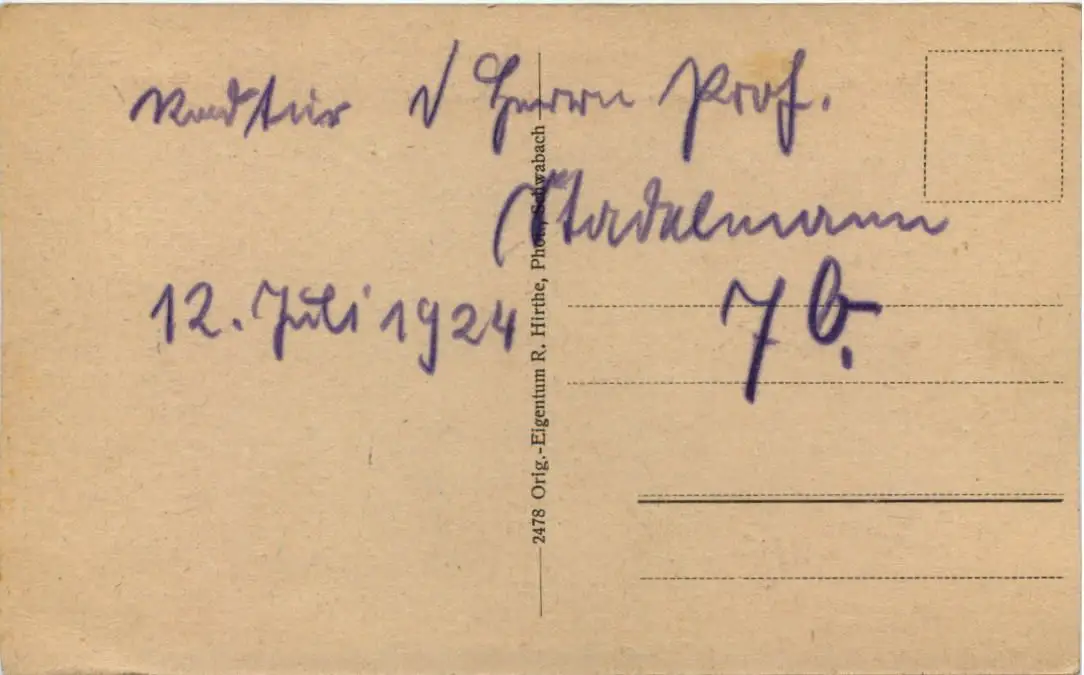 Radtur v Herrn Prof.
Stadelmann
12. Juli 1924
7 b.
2478 Orig.-Eigentum R. Hirthe, Phot., Schwabach